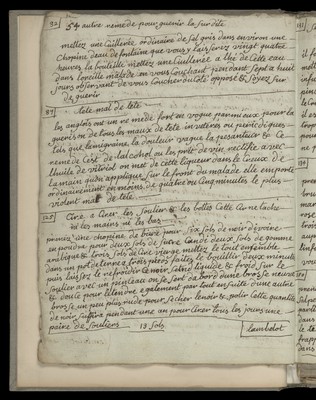 5e autre remede pour guerir la surdité
mettez une Cuillerée ordinaire de sel gris dans environ une
Chopine d'eau de fontaine que vous y laisserez vingt quatre
heures la bouteille mettez une Cuillerée a thé de Cette eau
dans l'oreille malade en vous Couchant pendant sept a huit
jours observant de vous Coucher du côté opposé & soyez sur
de guerir
tete mal de tete
les anglois ont un remede fort en vogue parmi eux pour la
guerison de tous les maux de tete inveterés ou periodiques
tels que la migraine, la douleur vague, la pesanteur &c Ce
remede C'est de l'alcohol ou les prit de vin rectifié avec
l'huile de vitriol on met de cette liqueur dans le Creux de
la main qu'on applique sur le front du malade elle emporte
ordinairement en moins de quatre ou Cinq minutes le plus
violent mal de tete
Cire a Cirer les souliers & les bottes Cette Cire ne tache
ni les mains ni les bas
prenez une chopine de biere pour six sols de noir d'ivoire
en poudre pour deux sols de sucre Candi deux sols de gomme
arabique & trois sols de Cire vierge mettez le tout ensemble
dans un pot de terre a trois pieds faites le bouillir deux minutes
puis laissez le refroidir Ce noir étend liquide & froid sur le
soulier avec un pinceau on se sert d'abord d'une brosse neuve
& douce pour l'etendre egalement par tout ensuite d'une autre
brosse un peu plus rude pour secher le noir & polir Cette quantité
de noir suffira pendant une an pour Cirer tous les jours une
paire de souliers 18 sols